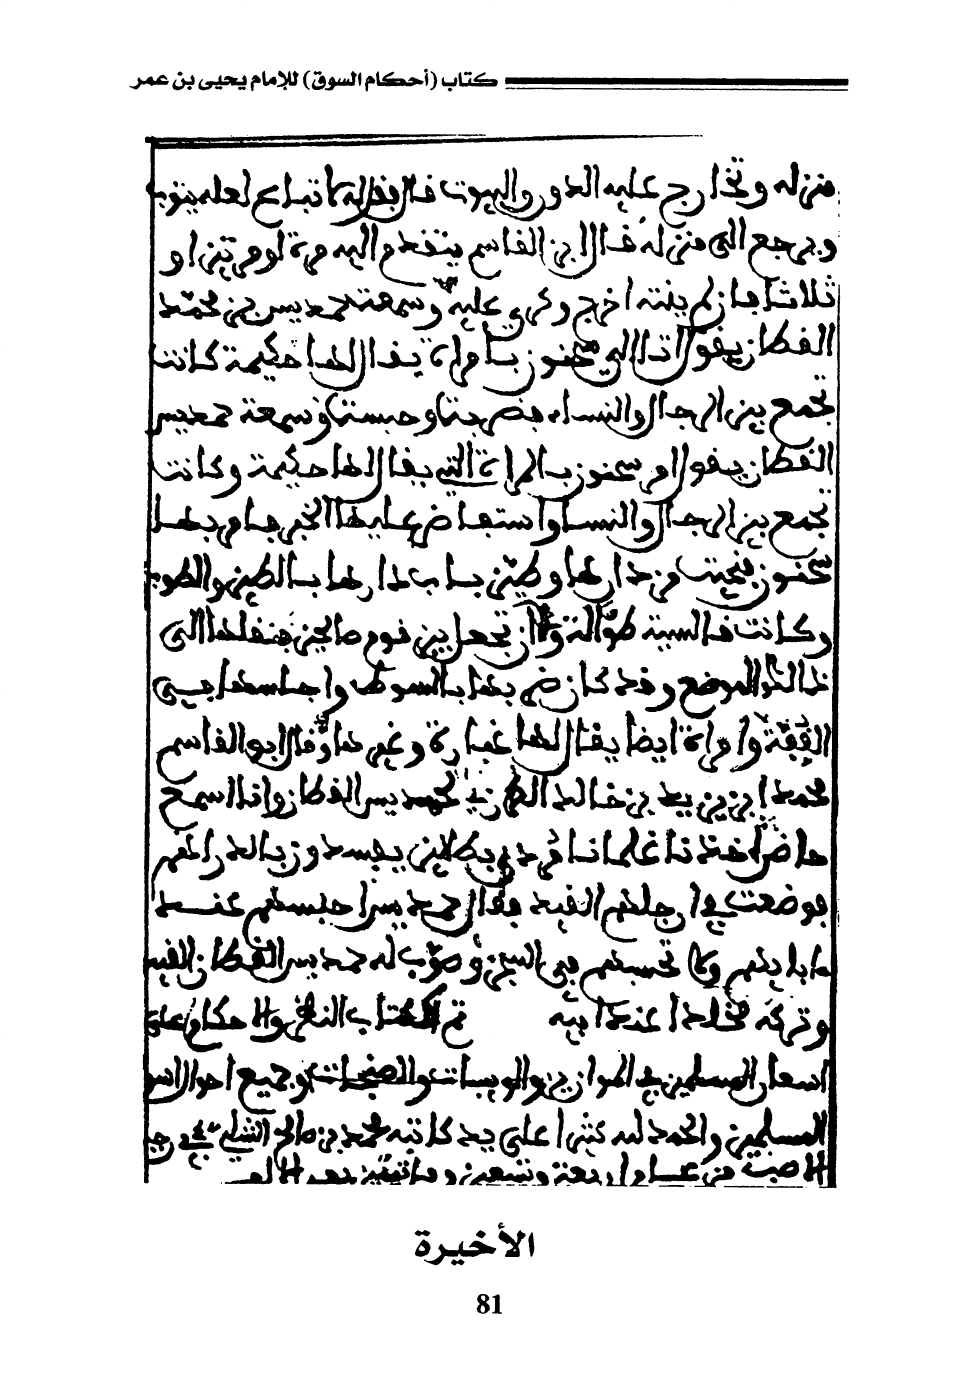 كتاب (أحكام السوق) للإمام يحيى بن عمر
منزله وتخارج عليه الدور والبيوت فقال بقوله لا تباع لعله يتوب
ويرجع الى منزله قال ابن القاسم يتقدم اليه مرة او مرتين او
ثلاثا فان لم ينته اخرج وكري عليه وسمعت حمديس بن محمد
القطان يقول اتى الى سحنون بامراة يقال لها حكيمة كانت
تجمع بين الرجال والنساء فضربها وحبسها وسمعت حمديس
القطان يقول امر سحنون بالمراة التي يقال لها حكيمة وكانت
تجمع بين الرجال والنساء واستفاض عليها الخبر فامر بها
سحنون فنحيت من دارها وطين باب دارها بالطين والطوب
وكانت طوالة ان تجعل بين قوم صالحين فنقلها الى
ذالك الموضع وقد كان ضربها بالسوط واجلسها في
القفة وامراة ايضا يقال لها غبارة وغيرها وقال ابو القاسم
محمد ابن زيد بن خالد الطرزي لحمديس القطان وانا اسمع
حاضر عندنا غلمانا مرد يبطلون يفسدون بالدراهم
فوضعت في ارجلهم القيد فقال حمديس احبسهم عند
ءابايهم ولا تحبسهم في السجن وصوب له حمديس القطان القيد
وتركه مخلدا عند ابيه تم الكتاب النظر والاحكام على
اسعار المسلمين في الموازين والويبات والصنجات وجميع احوال اسو
المسلمين والحمد لله كثيرا على يد كاتبه محمد بن صالح
من عام اربعة وتسعين ومائتين بعد الالف
الأخيرة
81